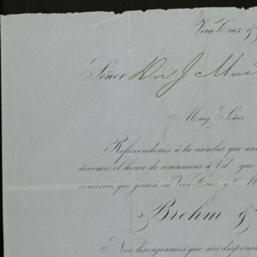 Vera Cruz y
Señor Dn J
Muy Señor
Refiriendonos á la circular que
tenemos el honor de comunicar á Vd. que
comercio, que giraba en Vera Cruz y
Brehm &
Nos lisongeamos que nos dispensa